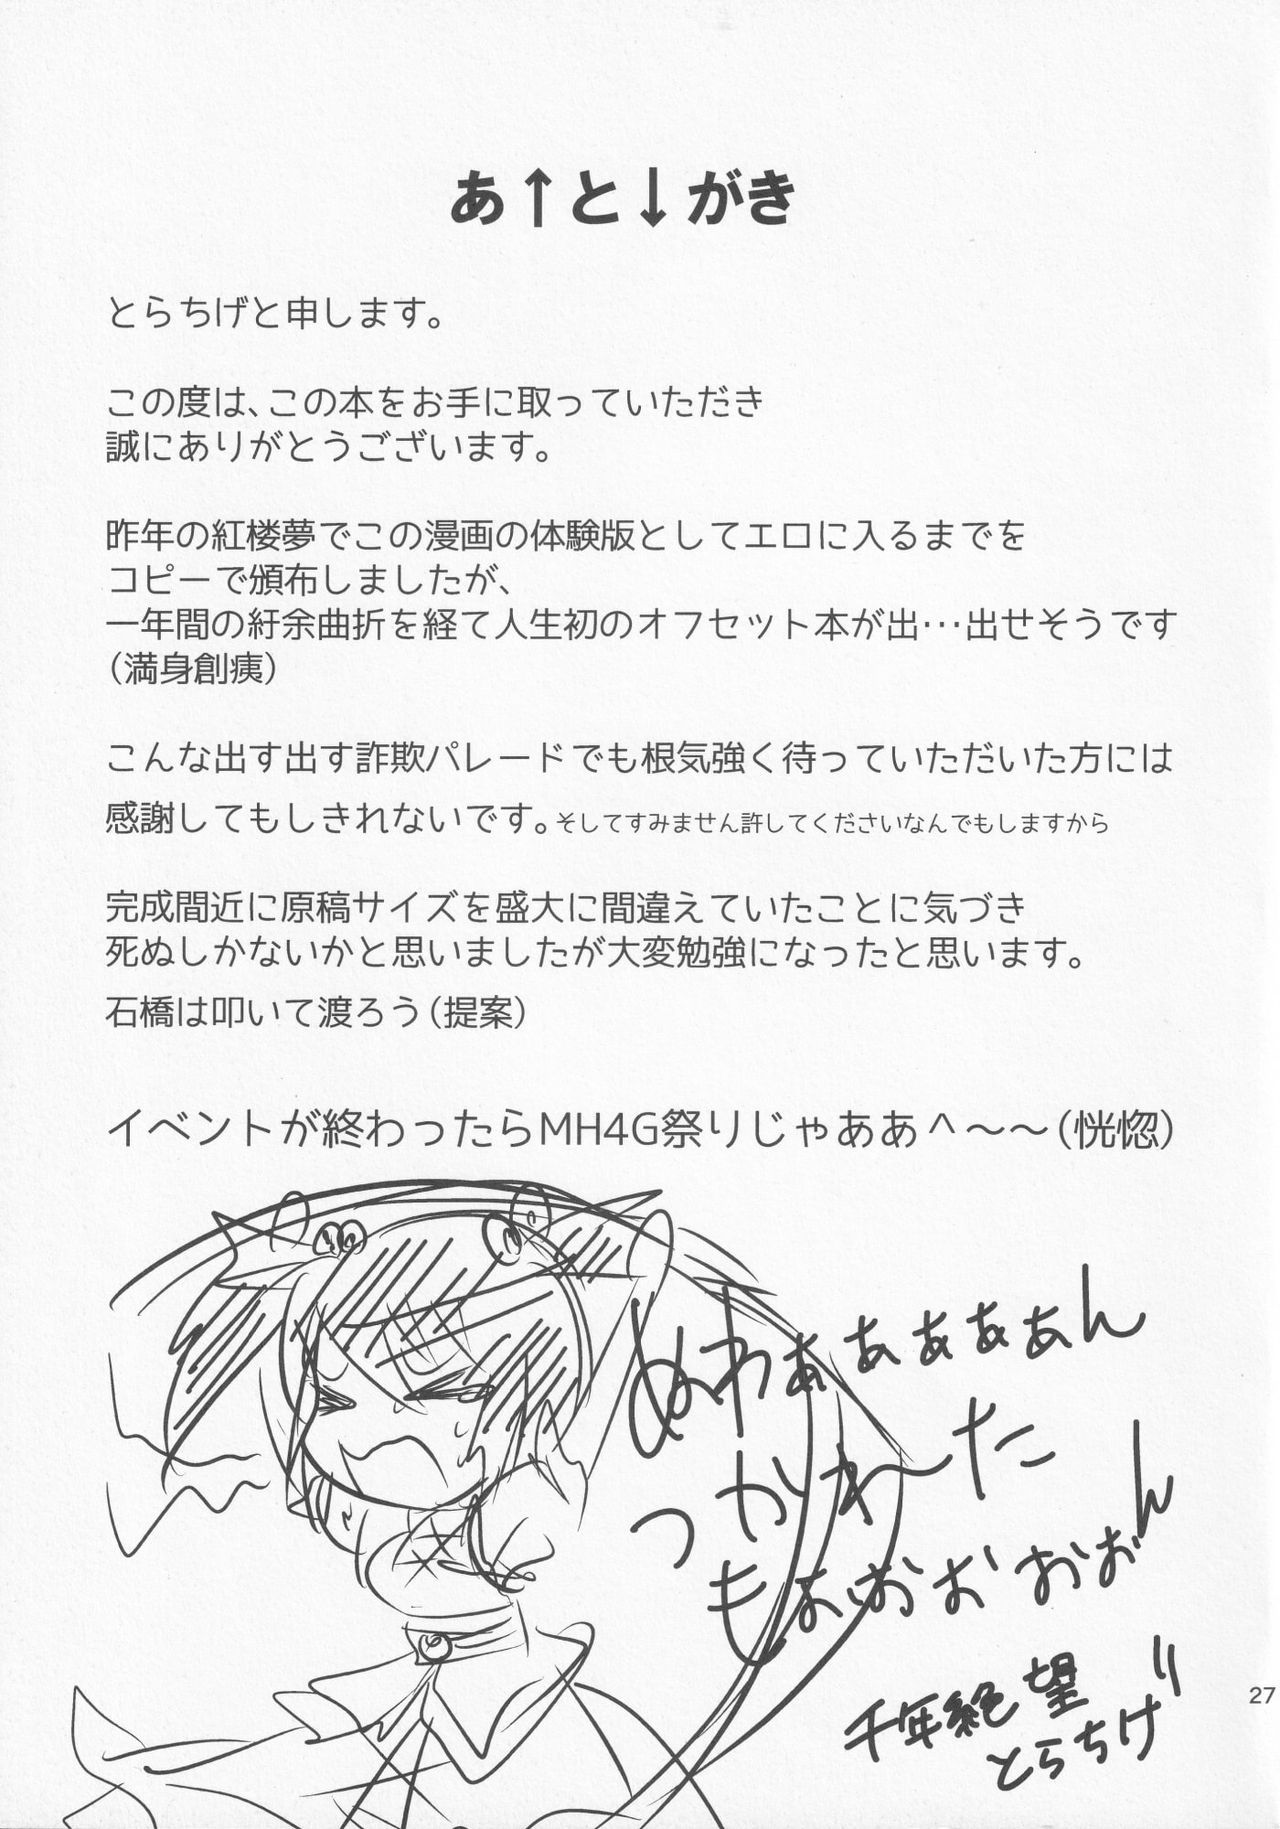 あ↑と↓がき
とらちげと申します。
この度は、この本をお手に取っていただき
誠にありがとうございます。
昨年の紅楼夢でこの漫画の体験版としてエロに入るまでを
コピーで頒布しましたが、
一年間の紆余曲折を経て人生初のオフセット本が出…出せそうです
(満身創痍)
こんな出す出す詐欺パレードでも根気強く待っていただいた方には
感謝してもしきれないです。そしてすみません許してくださいなんでもしますから
完成間近に原稿サイズを盛大に間違えていたことに気づき
死ぬしかないかと思いましたが大変勉強になったと思います。
石橋は叩いて渡ろう(提案)
イベントが終わったらMH4G祭りじゃああ^～～(恍惚)
ぬわぁぁぁぁぁん
つかれーた
もぉおおおおぉん
千年絶望
とらちげ
27